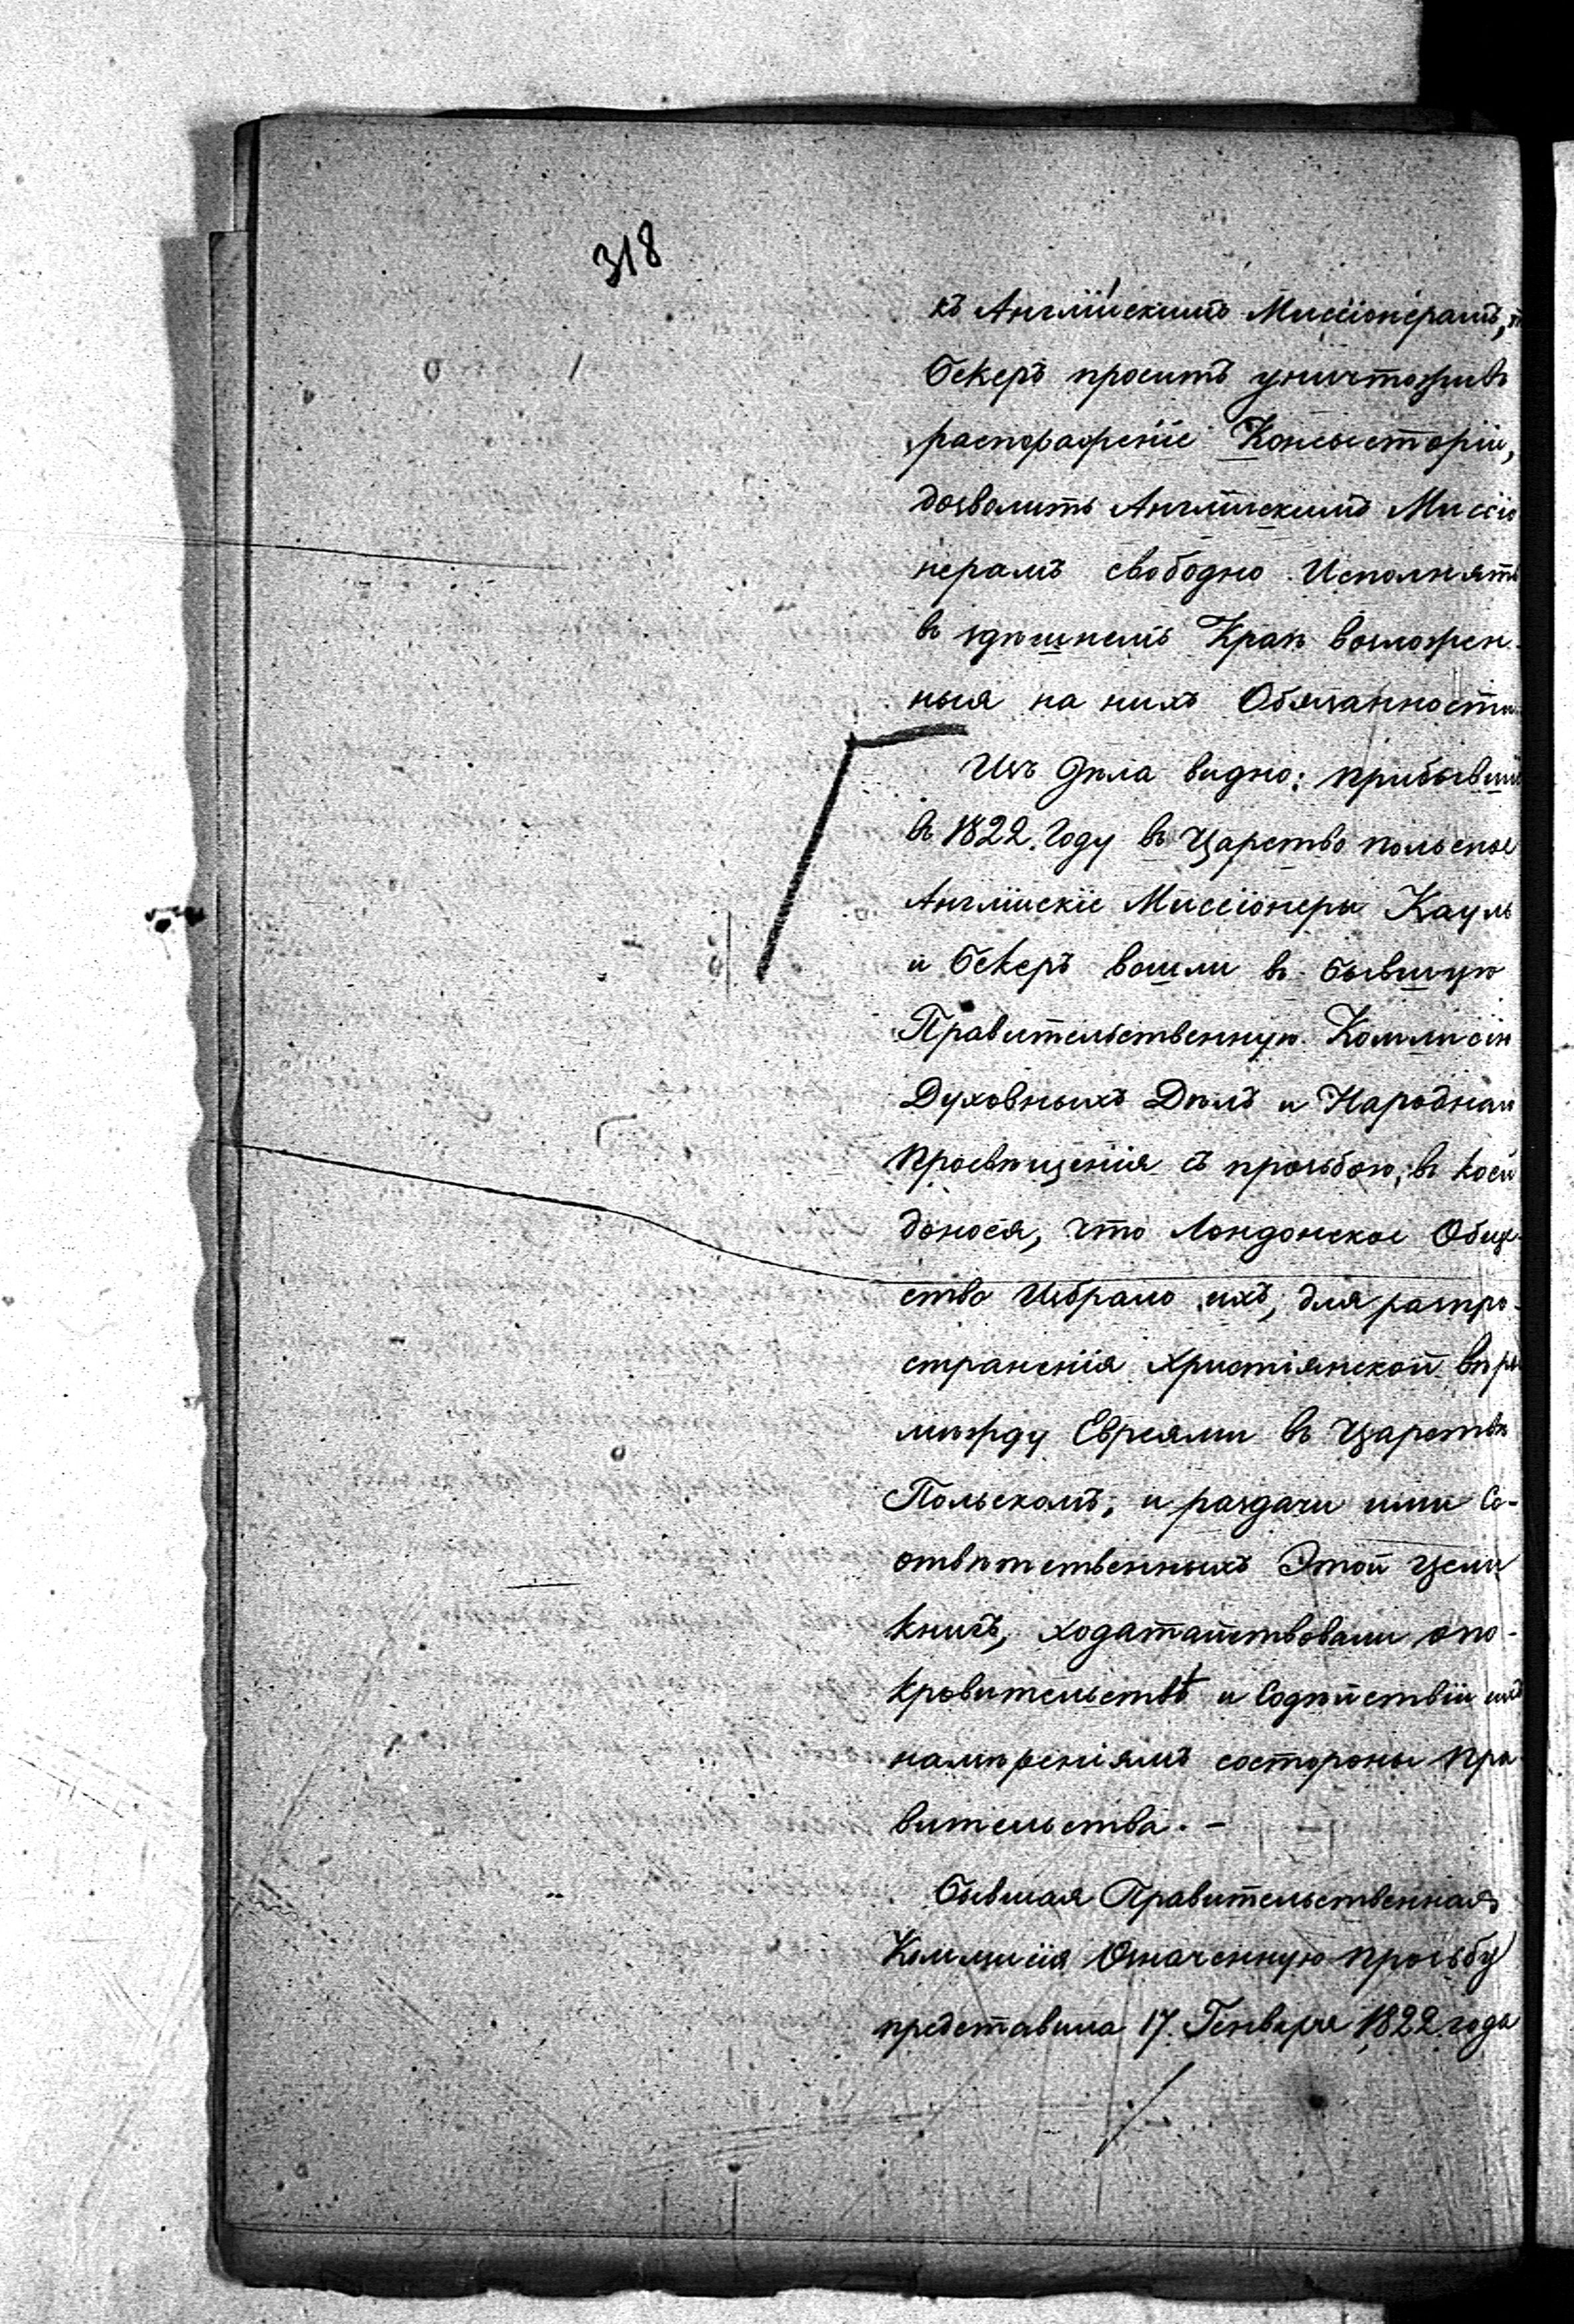 318
къ Англійскимъ Миссіонерамъ,
Бекеръ проситъ уничтоживъ
распоряженіе Консысторіи,
дозволить Англійскимъ Миссіо
нерамъ свободно Исполнять
въ здѣшнемъ Краѣ возложен-
ныя на нихъ Обязанности.
Изъ Дѣла видно: прибывшіе
въ 1822. Году въ Царство польское
Англійскіе Миссіонеры Кауль
и Бекеръ вошли въ бывшую
Правительственную Коммисію
Духовныхъ Дѣлъ и Народнаго
просвѣщенія съ прозьбою, въ коей
донося, что Лондонское Обще-
ство Избрало ихъ, для разпро-
страненія Христіянской вѣры
мѣжду Евреями въ Царствѣ
Польскомъ, и раздачи ими Со-
отвѣтственныхъ Этой цели
книгъ, ходатайствовали опо-
кровительствѣ и Содѣйствіи ихъ
намѣреніямъ состороны Пра
вительства. -
Бывшая Правительственная
Коммисія Означенную прозьбу
представила 17. Генваря 1822 года